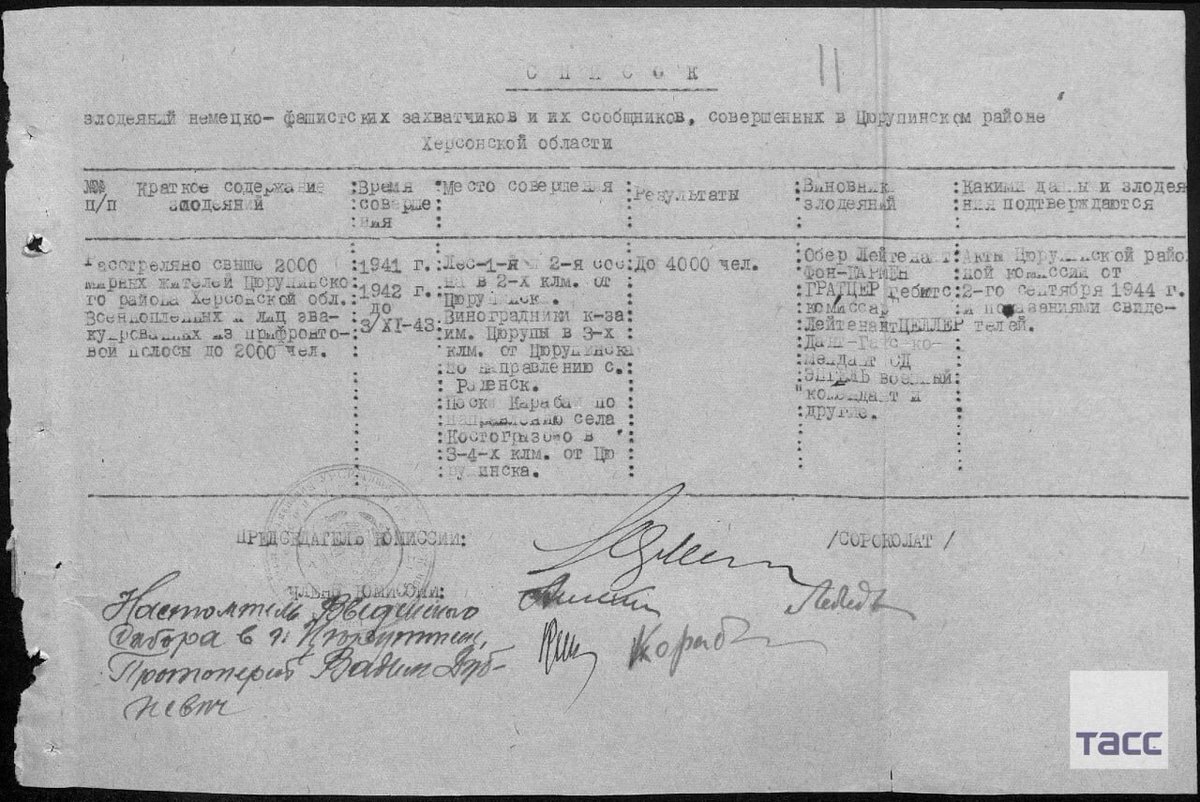 11
СПИСОК
злодеяний немецко-фашистских захватчиков и их сообщников, совершенных в Цюрупинском районе
Херсонской области
№№ Краткое содержание :Время :Место совершения :Результаты :Виновники :Какими данны и злодея
п/п злодеяний :соверше : : :злодеяний :ния подтверждаются
:ния
Расстреляно свыше 2000 :1941 г.:Лес-1-я и 2-я сос :До 4000 чел. :Обер Лейтенант :Акты Цюрупинской райо
мирных жителей Цюрупинско :1942 г.:на в 2-х клм. от :Фон- :ной комиссии от
го района Херсонской обл. :до :Цюрупинска. :ГРАТЦЕР гебитс :2-го сентября 1944 г.
Военнопленных и лиц эва- :3/XI-43:Виноградники к-за :комиссар :и показаниями свиде-
куированных из прифронто- :им. Цюрупы в 3-х :Лейтенант ЦЕЛЛЕР :телей.
вой полосы до 2000 чел. :клм. от Цюрупинска :ко-
:по направлению с. :мендант СД
:Раденск. :ЭНГЕЛЬ военный
:Пески по :комендант и
:направлению села :другие.
:Костогрызово в
:3-4-х клм. от Цю
:рупинска.
ПРЕДСЕДАТЕЛЬ КОМИССИИ: /СОРОКОЛАТ/
ЧЛЕНЫ КОМИССИИ:
Настоятель Введенского
Собора в г. Цюрупинске,
Протоиерей Вадим Дуб-
невич
тасс